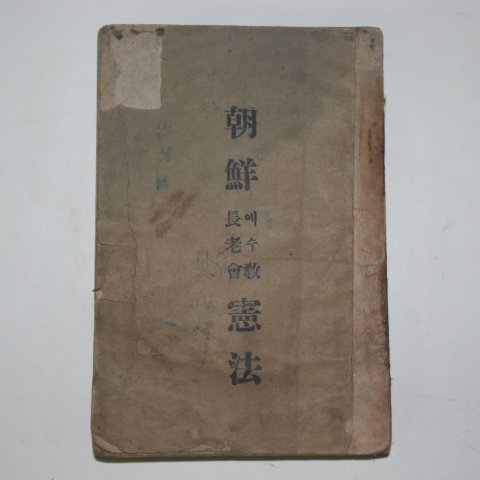 朝鮮
예수敎
長老會
憲法